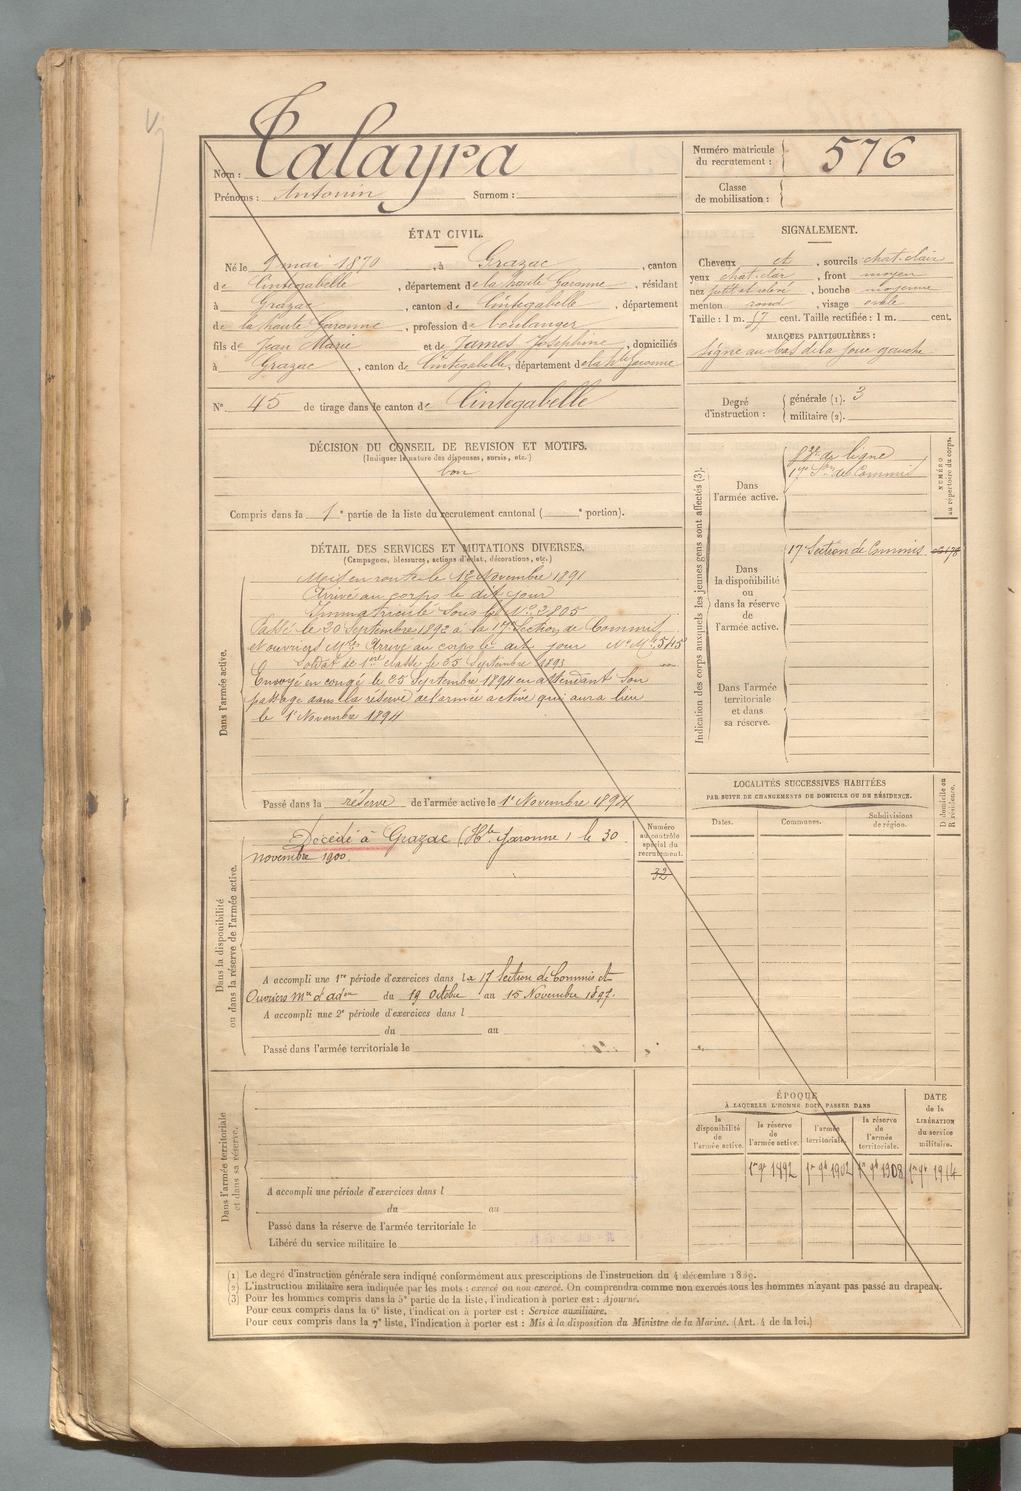 Nom : Talayra
Prénoms : Antonin Surnom :
Numéro matricule
du recrutement : 576
Classe
de mobilisation :
ÉTAT CIVIL.
Né le 9 mai 1870, à Grazac, canton
de Cintegabelle, département de la haute Garonne, résidant
à Grazac, canton de Cintegabelle, département
de la haute Garonne, profession de boulanger
fils de Jean Marie et de James Josephine, domiciliés
à Grazac, canton de Cintegabelle, département de la hte Garonne
N° 45 de tirage dans le canton de Cintegabelle
SIGNALEMENT.
Cheveux et, sourcils chat. clair
yeux chat. clair, front moyen
nez petit et relevé, bouche moyenne
menton rond, visage ovale
Taille : 1 m. 57 cent. Taille rectifiée : 1 m. cent.
MARQUES PARTICULIÈRES :
signe au bas de la joue gauche
Degré
d'instruction :
générale (1). 3
militaire (2).
DÉCISION DU CONSEIL DE REVISION ET MOTIFS.
(Indiquer la nature des dispenses, sursis, etc.)
bon
Compris dans la 1e partie de la liste du recrutement cantonal ( e portion).
DÉTAIL DES SERVICES ET MUTATIONS DIVERSES.
(Campagnes, blessures, actions d'éclat, décorations, etc.)
Dans l'armée active.
Mis en route le 12 Novembre 1891
Arrivé au corps le dit jour
Immatriculé sous le N° 2805
Passé le 20 Septembre 1892 à la 17e Section de Commis
et ouvriers Mres Arrivé au corps le dit jour N° Mle 545
Soldat de 1ere classe le 25 Septembre 1893
Envoyé en congé le 25 Septembre 1894 en attendant son
passage dans la réserve de l'armée active qui aura lieu
le 1r Novembre 1894
Passé dans la réserve de l'armée active le 1r Novembre 1894
Indication des corps auxquels les jeunes gens sont affectés (3).
NUMÉRO
au répertoire du corps.
Dans
l'armée active.
de ligne
17e Son de Commis
Dans
la disponibilité
ou
dans la réserve
de
l'armée active.
17e Section de Commis
Dans l'armée
territoriale
et dans
sa réserve.
LOCALITÉS SUCCESSIVES HABITÉES
PAR SUITE DE CHANGEMENTS DE DOMICILE OU DE RÉSIDENCE.
D domicile ou
R résidence.
Dates.
Communes.
Subdivisions
de région.
Dans la disponibilité
ou dans la réserve de l'armée active.
Décédé à Grazac (Hte Garonne) le 30
novembre 1900.
Numéro
au contrôle
spécial du
recrutement.
32
A accompli une 1re période d'exercices dans la 17 Section de Commis et
Ouvriers mres d'adon du 19 Octobre au 15 Novembre 1897.
A accompli une 2e période d'exercices dans l
du au
Passé dans l'armée territoriale le
Dans l'armée territoriale
et dans sa réserve.
A accompli une période d'exercices dans l
du au
Passé dans la réserve de l'armée territoriale le
Libéré du service militaire le
ÉPOQUE
À LAQUELLE L'HOMME DOIT PASSER DANS
la
disponibilité
de
l'armée active.
la réserve
de
l'armée active.
l'armée
territoriale.
la réserve
de
l'armée
territoriale.
DATE
de la
LIBÉRATION
du service
militaire.
1er 9bre 1902 1er 9bre 1908 1er 9bre 1914
(1) Le degré d'instruction générale sera indiqué conformément aux prescriptions de l'instruction du 4 décembre 1889.
(2) L'instruction militaire sera indiquée par les mots : exercé ou non exercé. On comprendra comme non exercés tous les hommes n'ayant pas passé au drapeau.
(3) Pour les hommes compris dans la 5e partie de la liste, l'indication à porter est : Ajourné.
Pour ceux compris dans la 6e liste, l'indication à porter est : Service auxiliaire.
Pour ceux compris dans la 7e liste, l'indication à porter est : Mis à la disposition du Ministre de la Marine. (Art. 4 de la loi.)